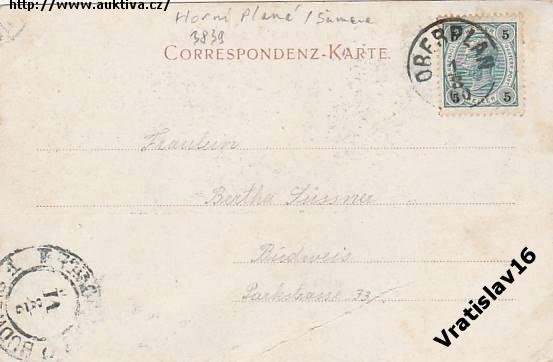 http://www.auktiva.cz/
Horní Planá / Šumava
3839
CORRESPONDENZ-KARTE.
OBERPLAN
5 5
5 5
Fräulein
Bertha Süssner
Budweis
Parkstrasse 33
Vratislav16